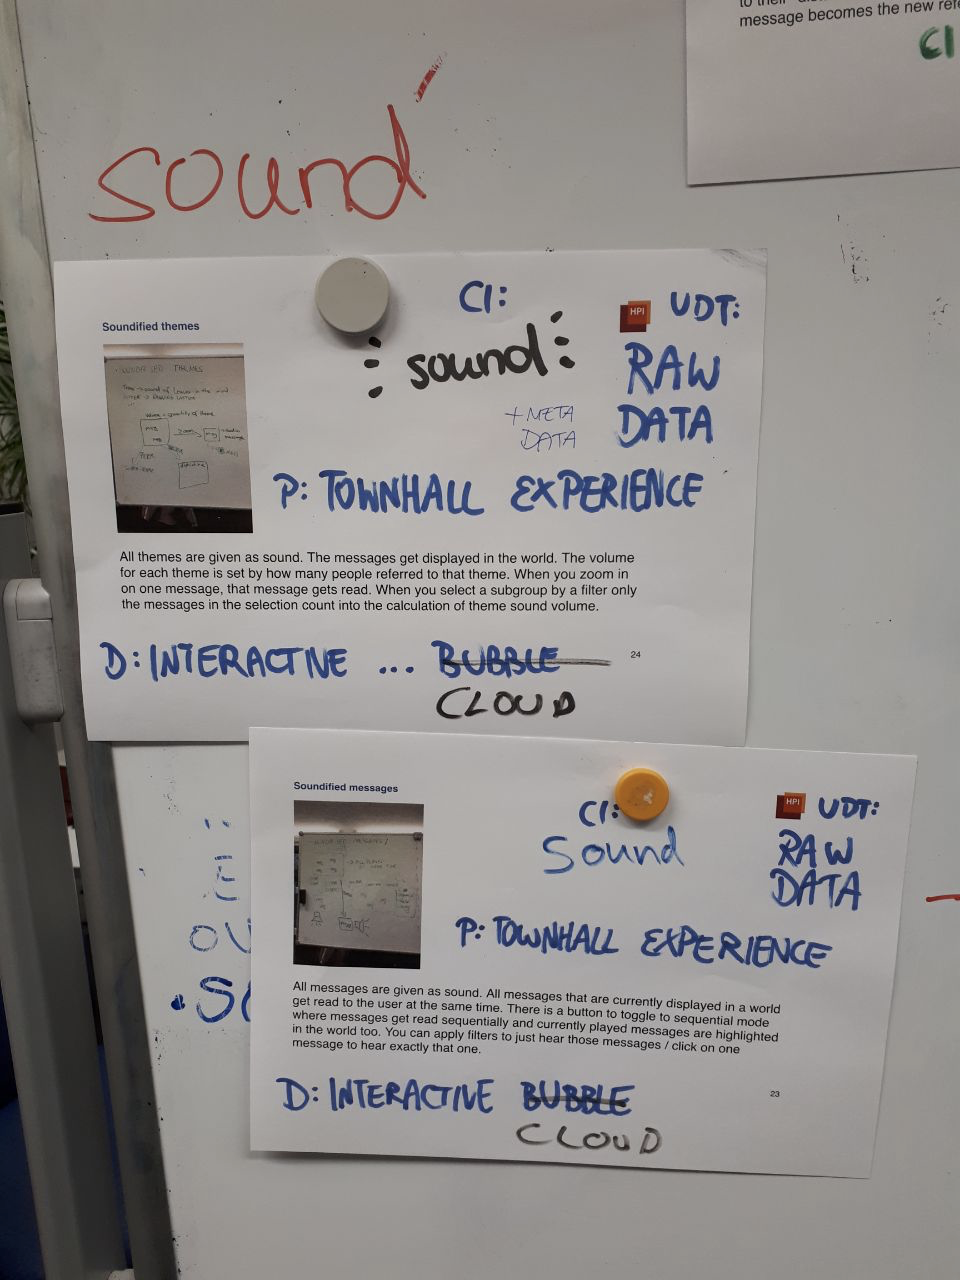 message becomes the new
CI
sound
Soundified themes
CI:
sound
HPI
UDT:
RAW
DATA
+ META
DATA
P: TOWNHALL EXPERIENCE
All themes are given as sound. The messages get displayed in the world. The volume
for each theme is set by how many people referred to that theme. When you zoom in
on one message, that message gets read. When you select a subgroup by a filter only
the messages in the selection count into the calculation of theme sound volume.
D: INTERACTIVE ... BUBBLE
CLOUD
24
Soundified messages
CI:
Sound
HPI
UDT:
RAW
DATA
P: TOWNHALL EXPERIENCE
All messages are given as sound. All messages that are currently displayed in a world
get read to the user at the same time. There is a button to toggle to sequential mode
where messages get read sequentially and currently played messages are highlighted
in the world too. You can apply filters to just hear those messages / click on one
message to hear exactly that one.
D: INTERACTIVE BUBBLE
CLOUD
23